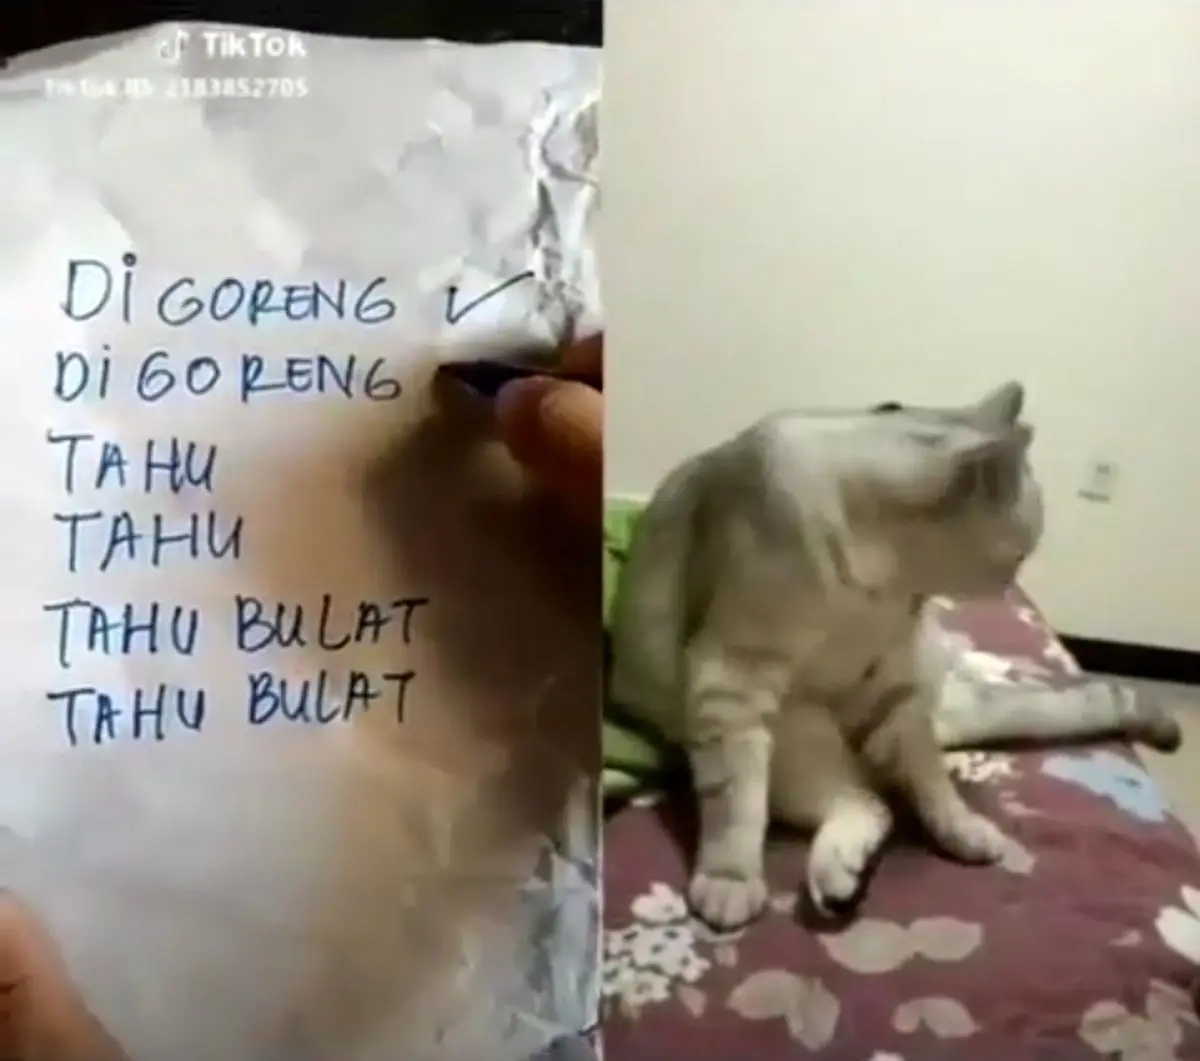 TikTok
TikTok ID: 2183852705
Di GORENG ✓
Di GORENG
TAHU
TAHU
TAHU BULAT
TAHU BULAT